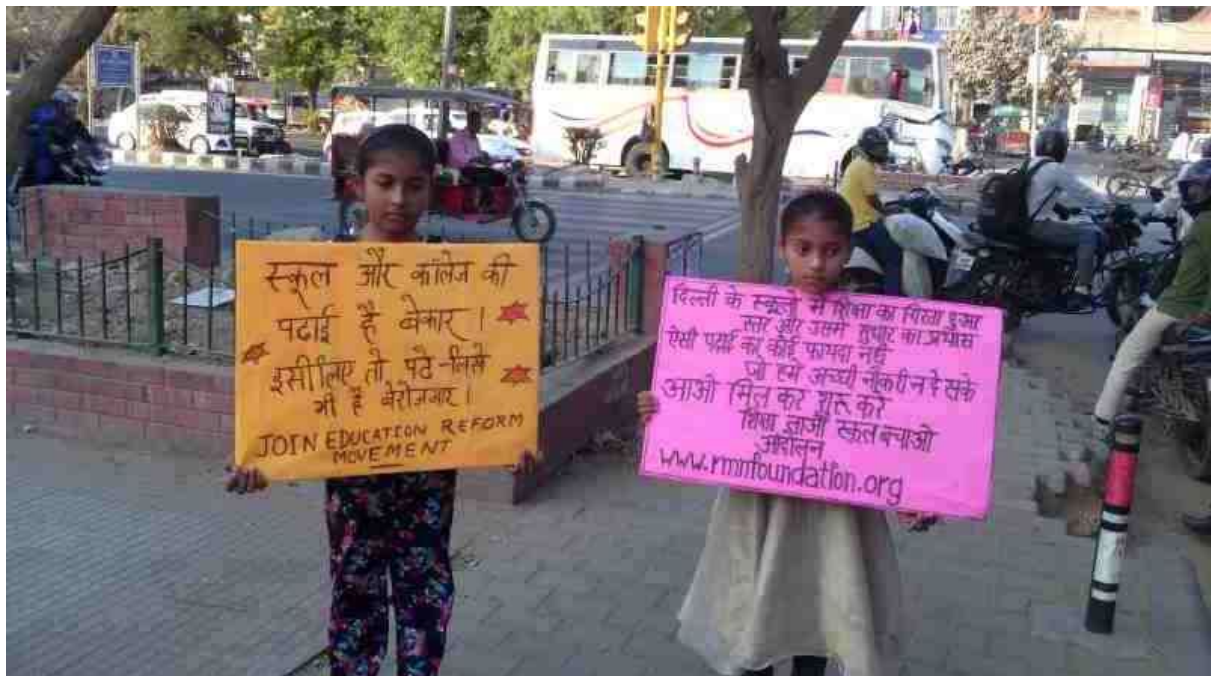 स्कूल और कॉलेज की
पढाई है बेकार ।
इसीलिए तो पढे-लिखे
भी है बेरोजगार ।
JOIN EDUCATION REFORM
MOVEMENT
दिल्ली के स्कूलों में शिक्षा का गिरता हुआ
स्तर और उसमें सुधार का प्रयास
ऐसी पढ़ाई का कोई फायदा नहीं
जो हमें अच्छी नौकरी न दे सके
आओ मिल कर शुरू करें
शिक्षा लाओ स्कूल बचाओ
आंदोलन
www.rmnfoundation.org